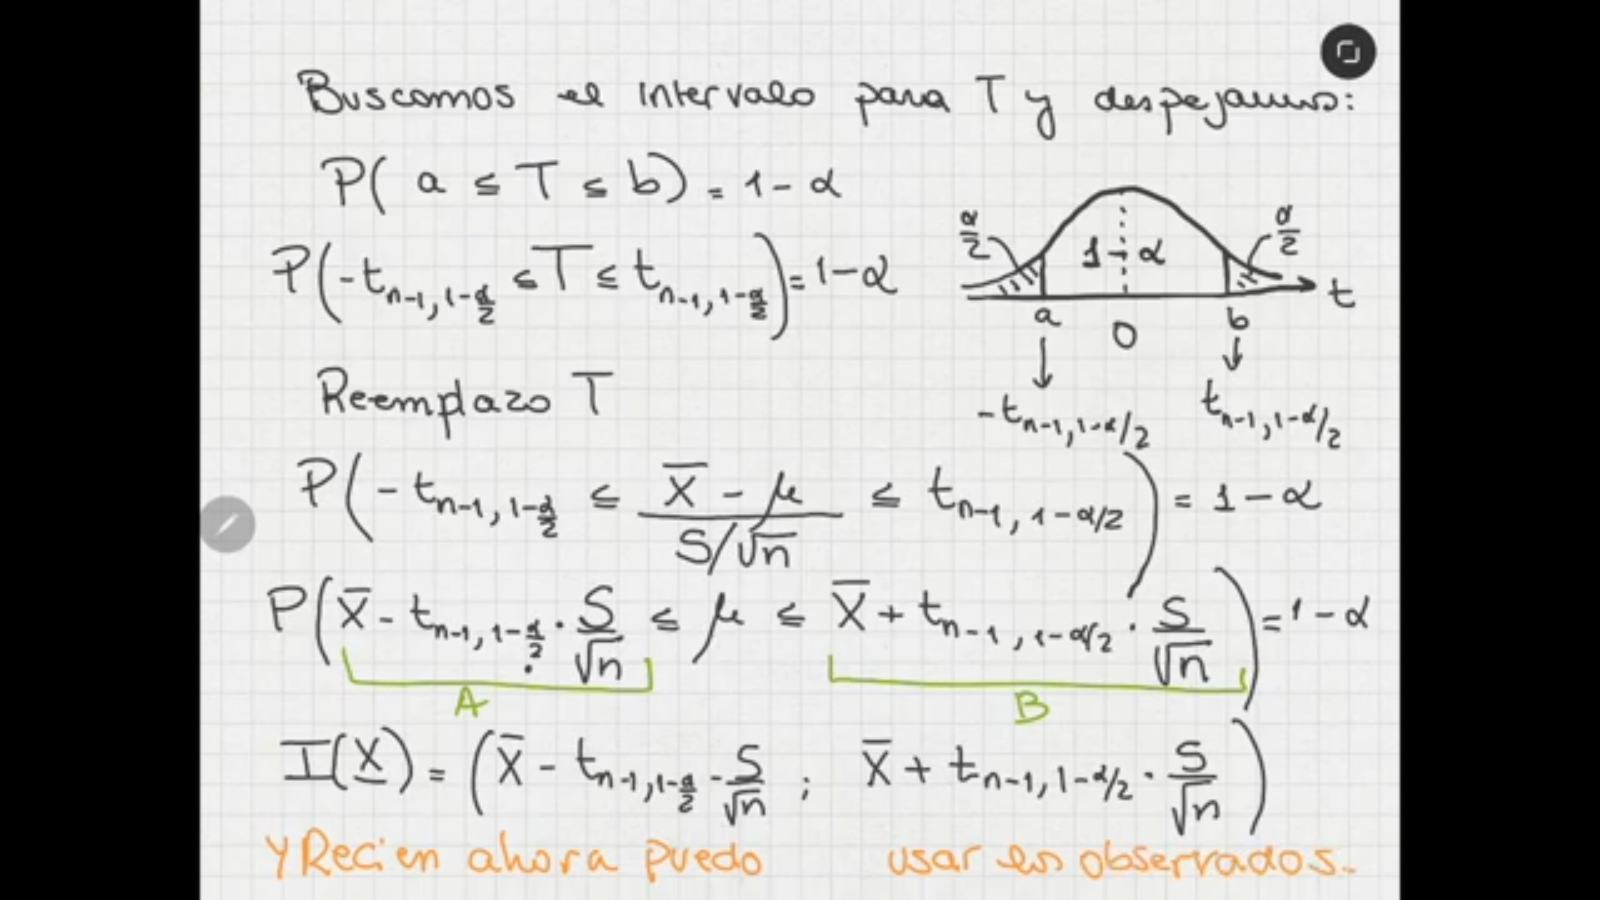 Buscamos el intervalo para T y despejamos:
P( a ≤ T ≤ b) = 1 - α
P(-t_{n-1, 1-α/2} ≤ T ≤ t_{n-1, 1-α/2}) = 1 - α
α/2
1 - α
α/2
t
a
0
b
-t_{n-1, 1-α/2}
t_{n-1, 1-α/2}
Reemplazo T
P(-t_{n-1, 1-α/2} ≤ (X̄ - μ)/(S/√n) ≤ t_{n-1, 1-α/2}) = 1 - α
P(X̄ - t_{n-1, 1-α/2} · S/√n ≤ μ ≤ X̄ + t_{n-1, 1-α/2} · S/√n) = 1 - α
A
B
I(X̲) = (X̄ - t_{n-1, 1-α/2} · S/√n ; X̄ + t_{n-1, 1-α/2} · S/√n)
Y Recien ahora puedo usar observados.